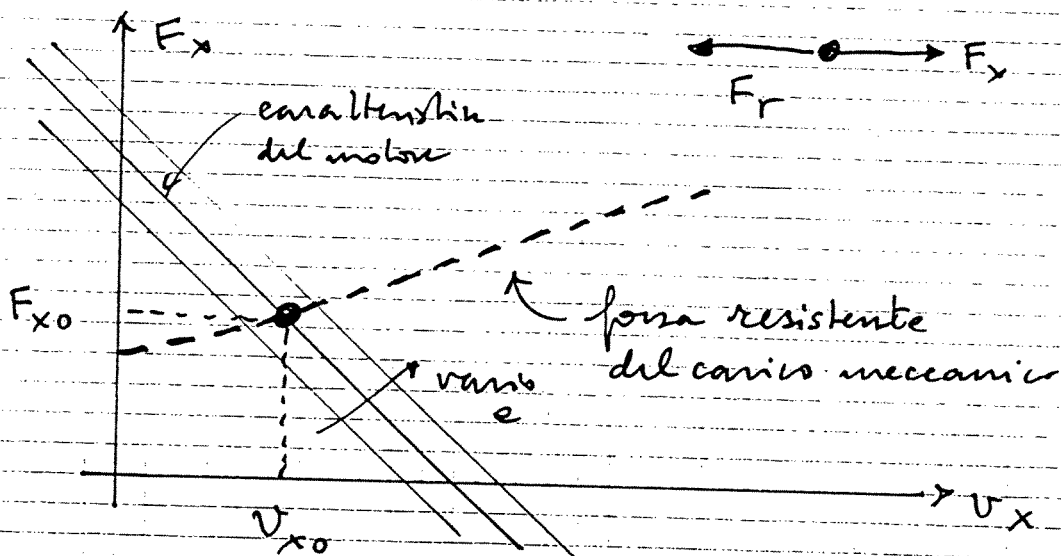 F_x
F_r
F_x
caratteristica
del motore
F_x0
forza resistente
del carico meccanico
vario
e
v_x0
v_x